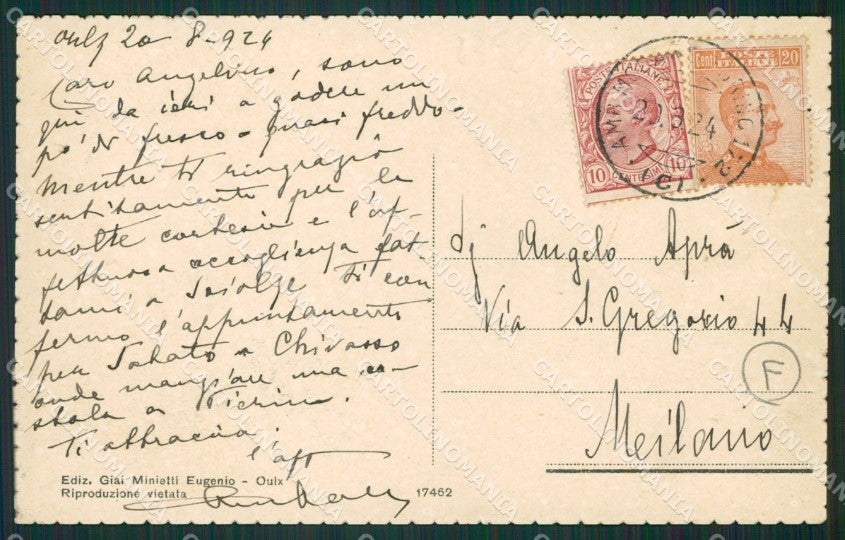 Oulx 20 8-924
Caro Angelino, sono
qui da ieri a godere un
pò di fresco - quasi freddo -
mentre ti ringrazio
sentitamente per le
molte cortesie e l'af-
fettuosa accoglienza fat
tami a Ti con
fermo l'appuntamento
per Sabato a Chivasso
onde mangiare una co-
stola a
Ti abbraccia
l'aff
Ediz. Giai Minietti Eugenio - Oulx
Riproduzione vietata
17462
POSTE ITALIANE
10 CENTESIMI 10
Cent. 20
POSTE ITALIANE
20.8.24
Sj Angelo Aprà
Via S. Gregorio 44
F
Milano
CARTOLINOMANIA